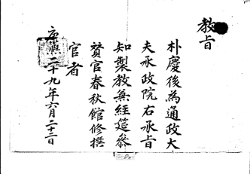 教旨
朴慶後為通政大
夫承政院右承旨
知製教兼經筵參
贊官春秋館修撰
官者
康熙二十九年六月二十二日